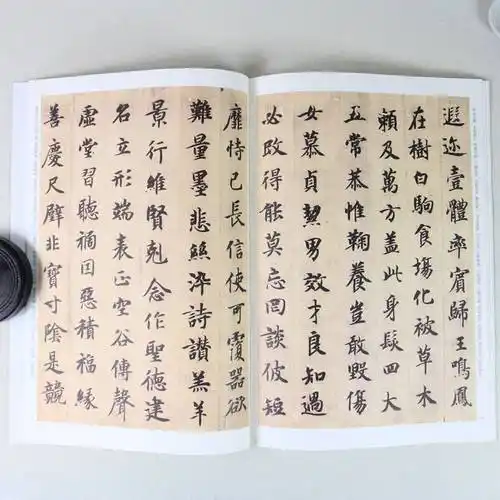 遐迩壹體率賓歸王鳴鳳
在樹白駒食場化被草木
賴及萬方盖此身髮四大
五常恭惟鞠養豈敢毀傷
女慕貞絜男效才良知過
必改得能莫忘罔談彼短
靡恃己長信使可覆器欲
難量墨悲絲染詩讚羔羊
景行維賢剋念作聖德建
名立形端表正空谷傳聲
虛堂習聽禍因惡積福緣
善慶尺璧非寶寸陰是競